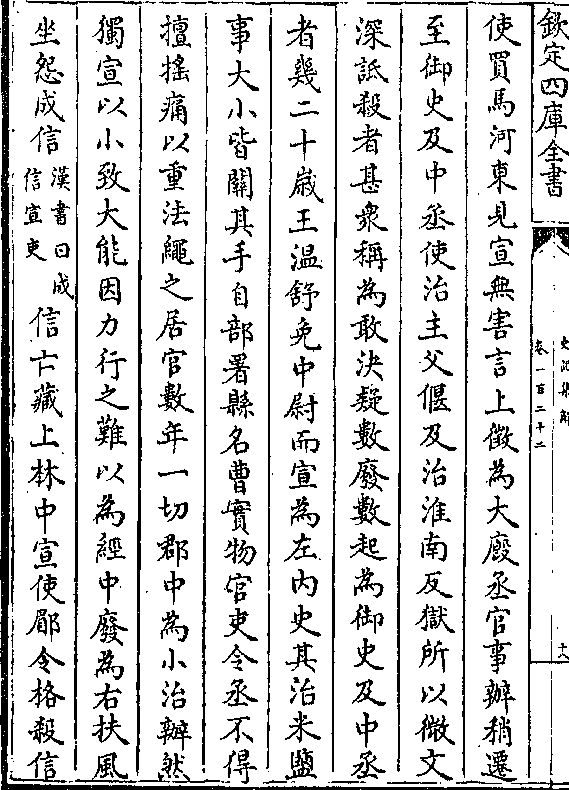 欽定四庫全書
史記集解
卷一百二十二
十八
使買馬河東見宣無害言上徵為大廄丞官事辦稍遷
至御史及中丞使治主父偃及治淮南反獄所以微文
深詆殺者甚衆稱為敢決疑數廢數起為御史及中丞
者幾二十嵗王温舒免中尉而宣為左内史其治米鹽
事大小皆關其手自部署縣名曹實物官吏令丞不得
擅揺痛以重法繩之居官數年一切郡中為小治辦然
獨宣以小致大能因力行之難以為經中廢為右扶風
坐怨成信
漢書曰成
信宣吏
信亡藏上林中宣使郿令格殺信